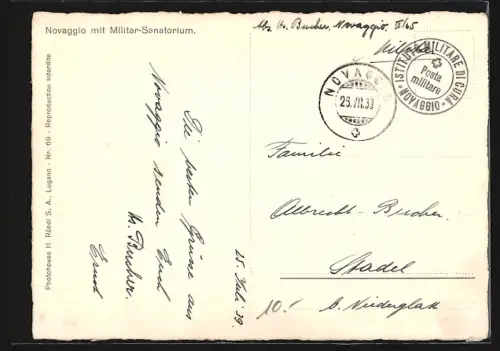 Novaggio mit Militar-Sanatorium.
Photohouse H. Rüedi S. A., Lugano - Nr. 69 - Reproduction interdite
Die besten Grüsse aus
Novaggio senden Euch
Hs. Bucher.
Ernst
25. Juli 39.
Abs. Hs. Bucher, Novaggio. II/65
Militär
NOVAGGIO
26.VII.39
ISTITUTO MILITARE DI CURA
NOVAGGIO
Posta
militare
Familie
Albrecht-Bucher.
Stadel
b. Niederglatt
10.-